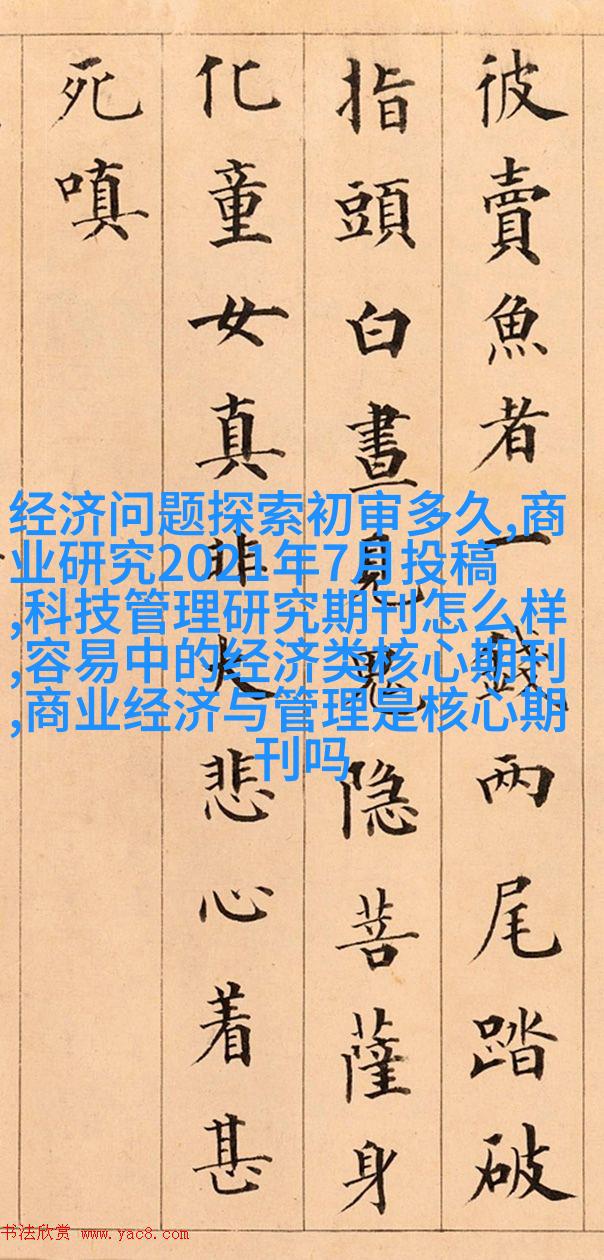 彼賣魚者一錢兩尾踏破
指頭白晝見鬼隱菩薩身
化童女真非大悲心着甚
死嗔
经济问题探索初审多久,商
业研究2021年7月投稿
,科技管理研究期刊怎么样
,容易中的经济类核心期刊
,商业经济与管理是核心期
刊吗
书法欣赏 www.yac8.com